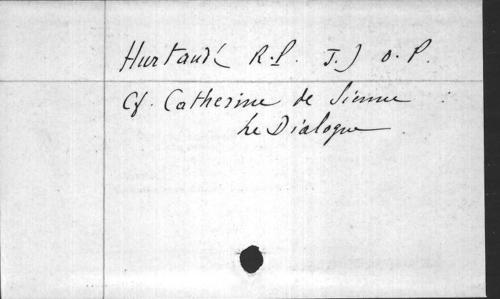 Hurtaud ( R.P. J.) O.P.
Cf. Catherine de Sienne
Le Dialogue